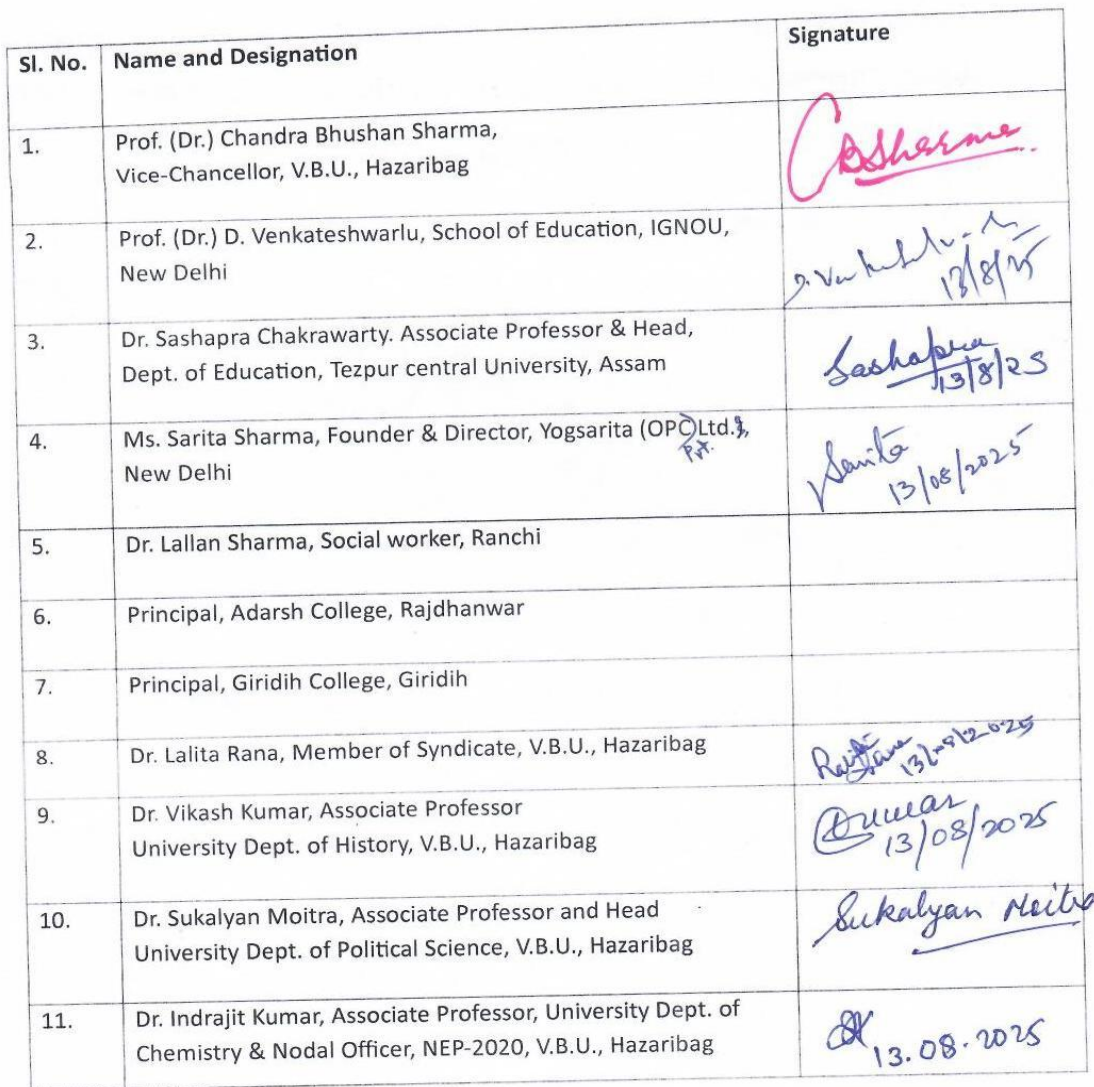 Sl. No. Name and Designation Signature
1. Prof. (Dr.) Chandra Bhushan Sharma,
Vice-Chancellor, V.B.U., Hazaribag
CBSharma
2. Prof. (Dr.) D. Venkateshwarlu, School of Education, IGNOU,
New Delhi
13/8/25
3. Dr. Sashapra Chakrawarty. Associate Professor & Head,
Dept. of Education, Tezpur central University, Assam
Sashapra
13/8/25
4. Ms. Sarita Sharma, Founder & Director, Yogsarita (OPC) Ltd.,
Pvt.
New Delhi
Sarita
13/08/2025
5. Dr. Lallan Sharma, Social worker, Ranchi
6. Principal, Adarsh College, Rajdhanwar
7. Principal, Giridih College, Giridih
8. Dr. Lalita Rana, Member of Syndicate, V.B.U., Hazaribag
13/08/2025
9. Dr. Vikash Kumar, Associate Professor
University Dept. of History, V.B.U., Hazaribag
Kumar
13/08/2025
10. Dr. Sukalyan Moitra, Associate Professor and Head
University Dept. of Political Science, V.B.U., Hazaribag
Sukalyan Moitra
11. Dr. Indrajit Kumar, Associate Professor, University Dept. of
Chemistry & Nodal Officer, NEP-2020, V.B.U., Hazaribag
13.08.2025